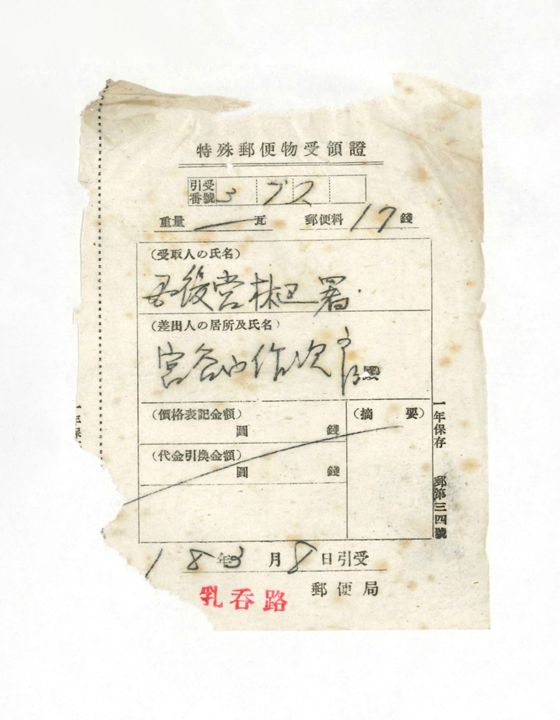 特殊郵便物受領證
引受番號 3 72
重量 瓦 郵便料 17 錢
(受取人の氏名)
営林署
(差出人の居所及氏名)
宮谷 作次郎
(價格表記金額)
圓 錢
(摘 要)
(代金引換金額)
圓 錢
一年保存 郵第三四號
一年保
18年3月8日引受
乳呑路 郵便局